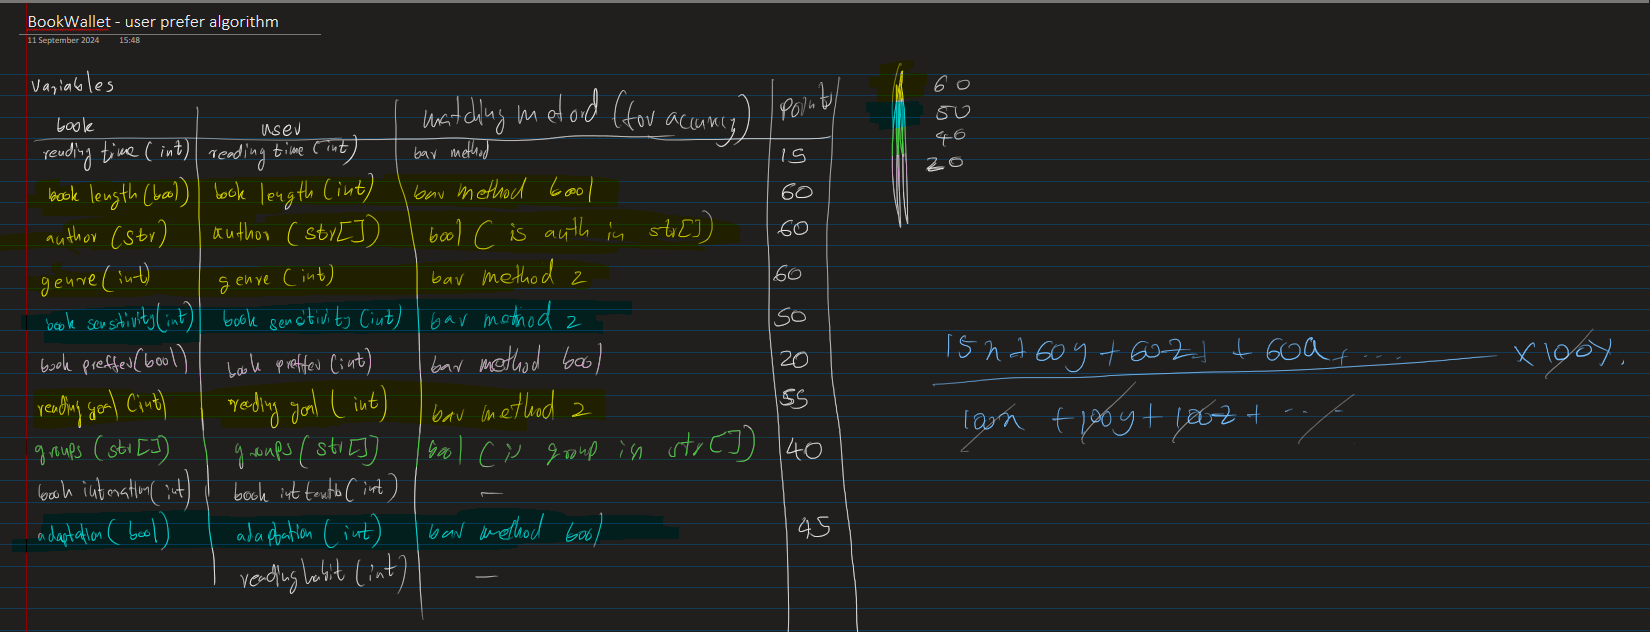 BookWallet - user prefer algorithm
11 September 2024 15:48
Variables
book user matching metord (for accuracy) points
reading time (int) reading time (int) bar method 15
book length (bool) book length (int) bar method bool 60
author (str) author (str[]) bool (is auth in str[]) 60
genre (int) genre (int) bar method 2 60
book sensitivity (int) book sensitivity (int) bar method 2 50
book preffer (bool) book preffer (int) bar method bool 20
reading goal (int) reading goal (int) bar method 2 55
groups (str[]) groups (str[]) bool (is group in str[]) 40
book (int) book (int) —
adaptation (bool) adaptation (int) bar method bool 45
reading habit (int) —
60
50
40
20
15x + 60y + 60z + 60a + ... x 100%.
100x + 100y + 100z + ...